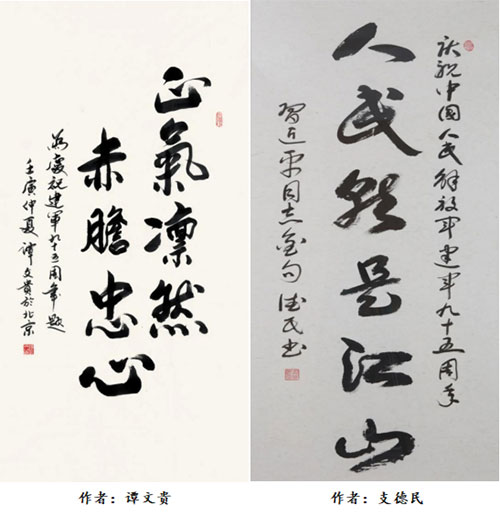 正氣凛然
赤膽忠心
为慶祝建軍九十五周年題
壬寅仲夏谭文貴於北京
庆祝中国人民解放军建军九十五周年
人民就是江山
習近平同志金句 德民书
作者：谭文貴
作者：支德民